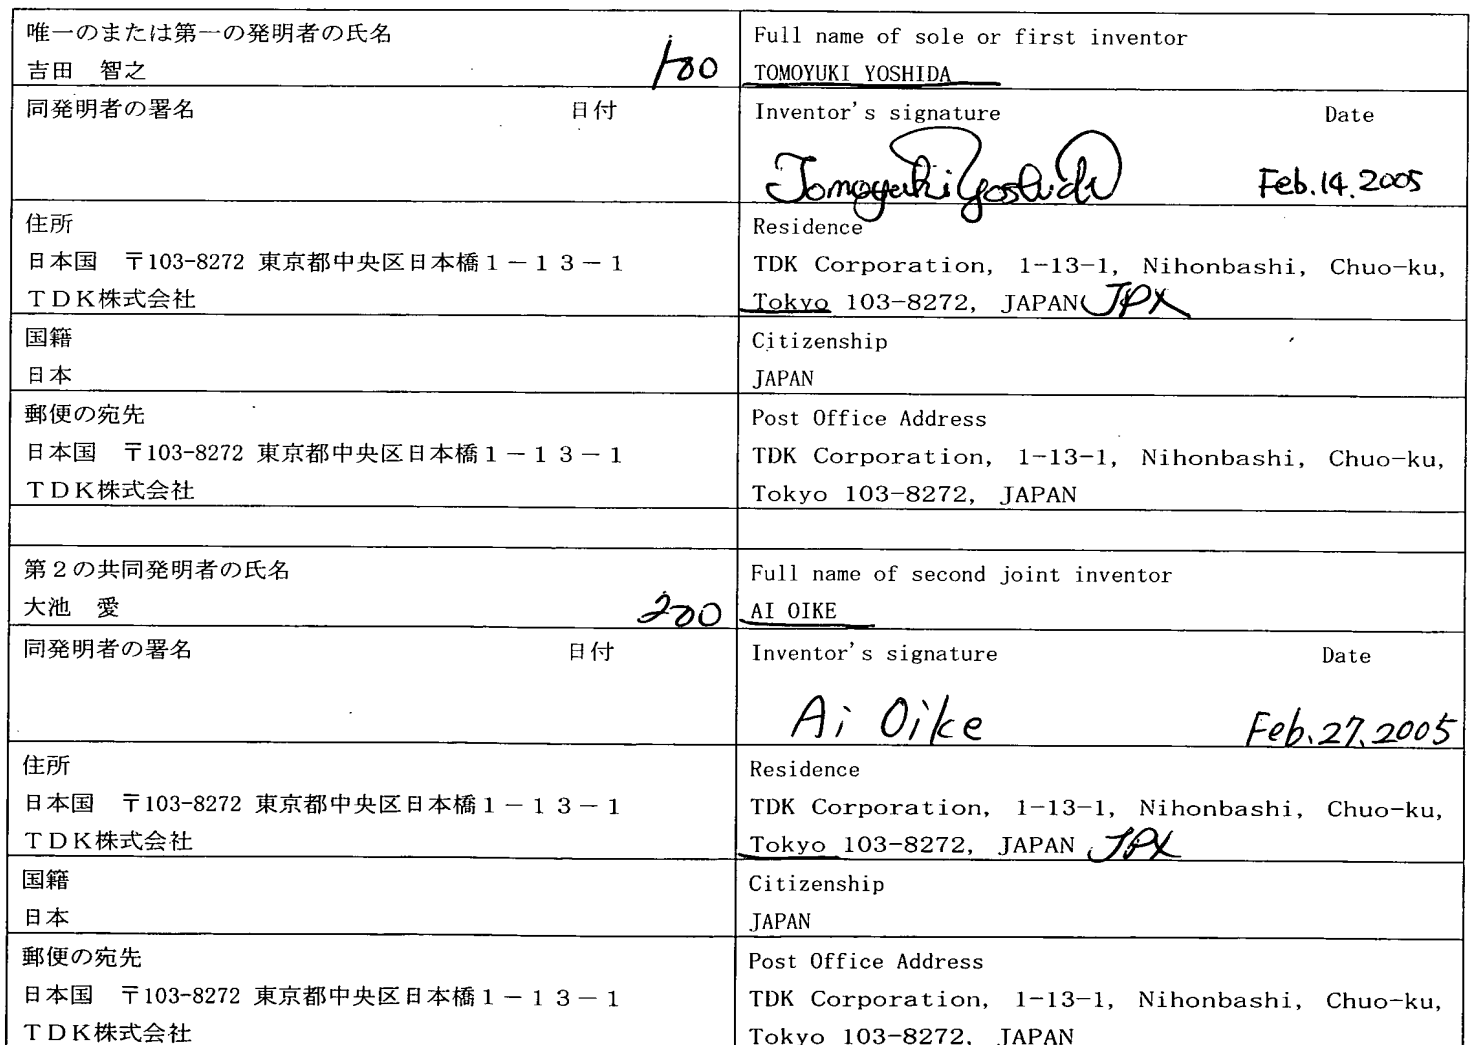 唯一のまたは第一の発明者の氏名
吉田　智之
100
Full name of sole or first inventor
TOMOYUKI YOSHIDA
同発明者の署名　日付
Inventor's signature　Date
Tomoyuki Yoshida　Feb.14.2005
住所
日本国　〒103-8272 東京都中央区日本橋１－１３－１
ＴＤＫ株式会社
Residence
TDK Corporation, 1-13-1, Nihonbashi, Chuo-ku,
Tokyo 103-8272, JAPAN JPX
国籍
日本
Citizenship
JAPAN
郵便の宛先
日本国　〒103-8272 東京都中央区日本橋１－１３－１
ＴＤＫ株式会社
Post Office Address
TDK Corporation, 1-13-1, Nihonbashi, Chuo-ku,
Tokyo 103-8272, JAPAN
第２の共同発明者の氏名
大池　愛
200
Full name of second joint inventor
AI OIKE
同発明者の署名　日付
Inventor's signature　Date
Ai Oike　Feb.27.2005
住所
日本国　〒103-8272 東京都中央区日本橋１－１３－１
ＴＤＫ株式会社
Residence
TDK Corporation, 1-13-1, Nihonbashi, Chuo-ku,
Tokyo 103-8272, JAPAN JPX
国籍
日本
Citizenship
JAPAN
郵便の宛先
日本国　〒103-8272 東京都中央区日本橋１－１３－１
ＴＤＫ株式会社
Post Office Address
TDK Corporation, 1-13-1, Nihonbashi, Chuo-ku,
Tokyo 103-8272, JAPAN